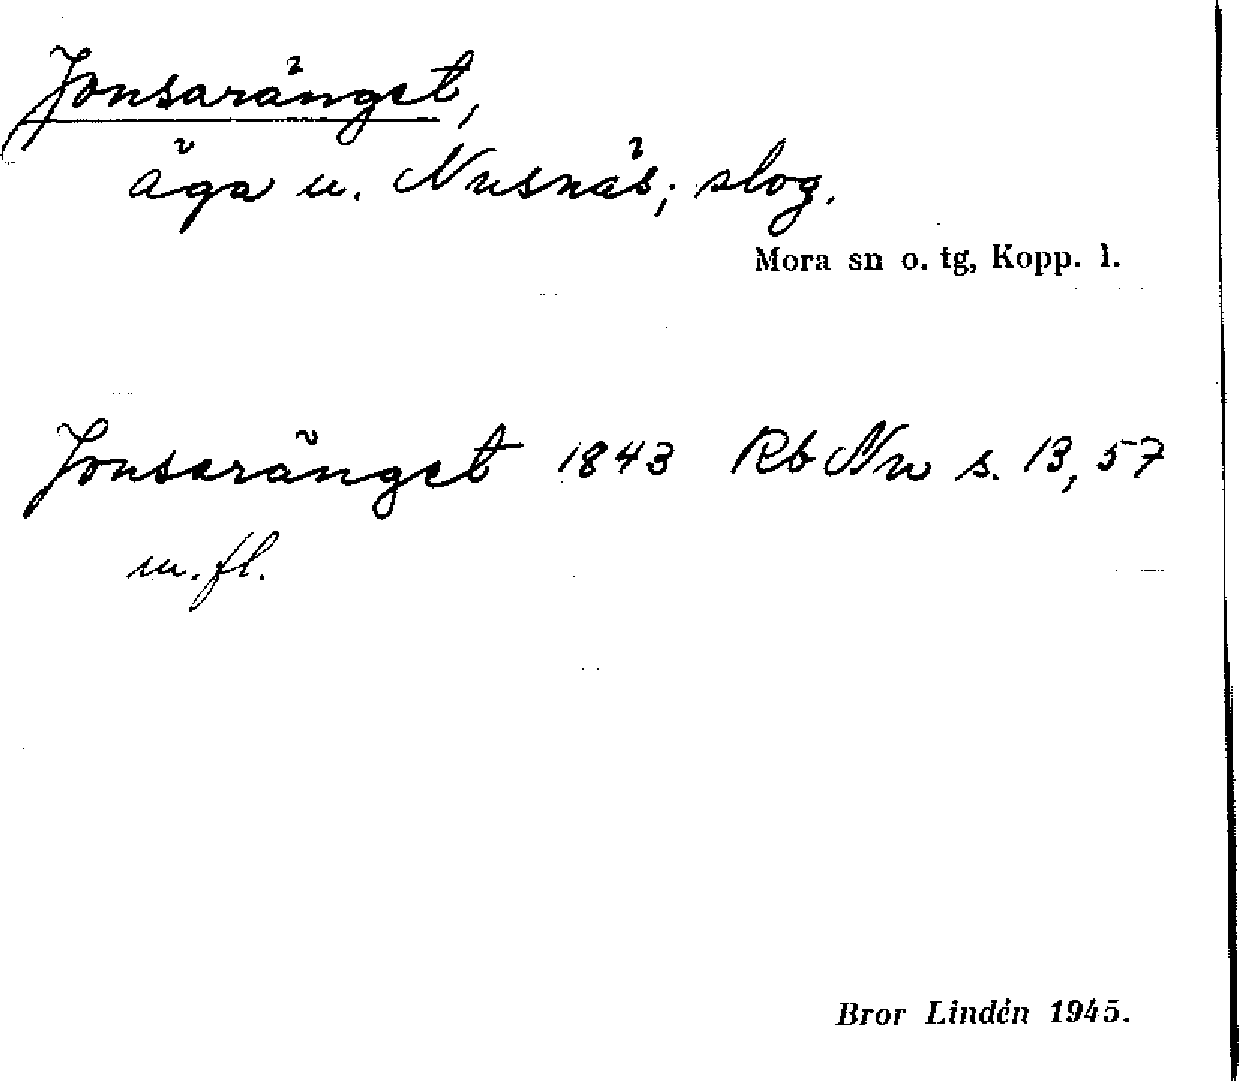 Jonsaränget,
äga u. Nusnäs; slog.
Mora sn o. tg, Kopp. l.
Jonsaränget 1843 Rb Nu s. 13, 57
m. fl.
Bror Lindén 1945.